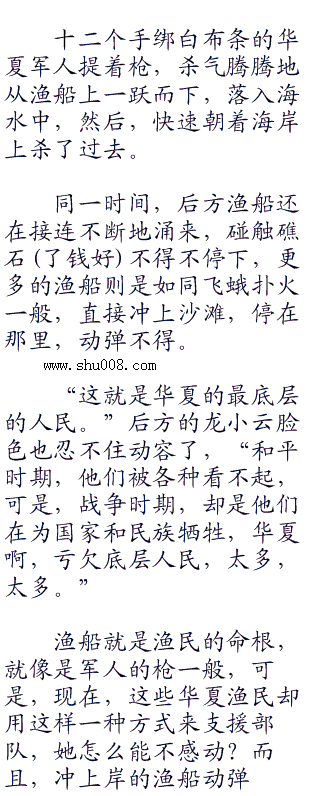 十二个手绑白布条的华
夏军人提着枪，杀气腾腾地
从渔船上一跃而下，落入海
水中，然后，快速朝着海岸
上杀了过去。
同一时间，后方渔船还
在接连不断地涌来，碰触礁
石(了钱好)不得不停下，更
多的渔船则是如同飞蛾扑火
一般，直接冲上沙滩，停在
那里，动弹不得。
www.shu008.com
“这就是华夏的最底层
的人民。”后方的龙小云脸
色也忍不住动容了，“和平
时期，他们被各种看不起，
可是，战争时期，却是他们
在为国家和民族牺牲，华夏
啊，亏欠底层人民，太多，
太多。”
渔船就是渔民的命根，
就像是军人的枪一般，可
是，现在，这些华夏渔民却
用这样一种方式来支援部
队，她怎么能不感动？而
且，冲上岸的渔船动弹